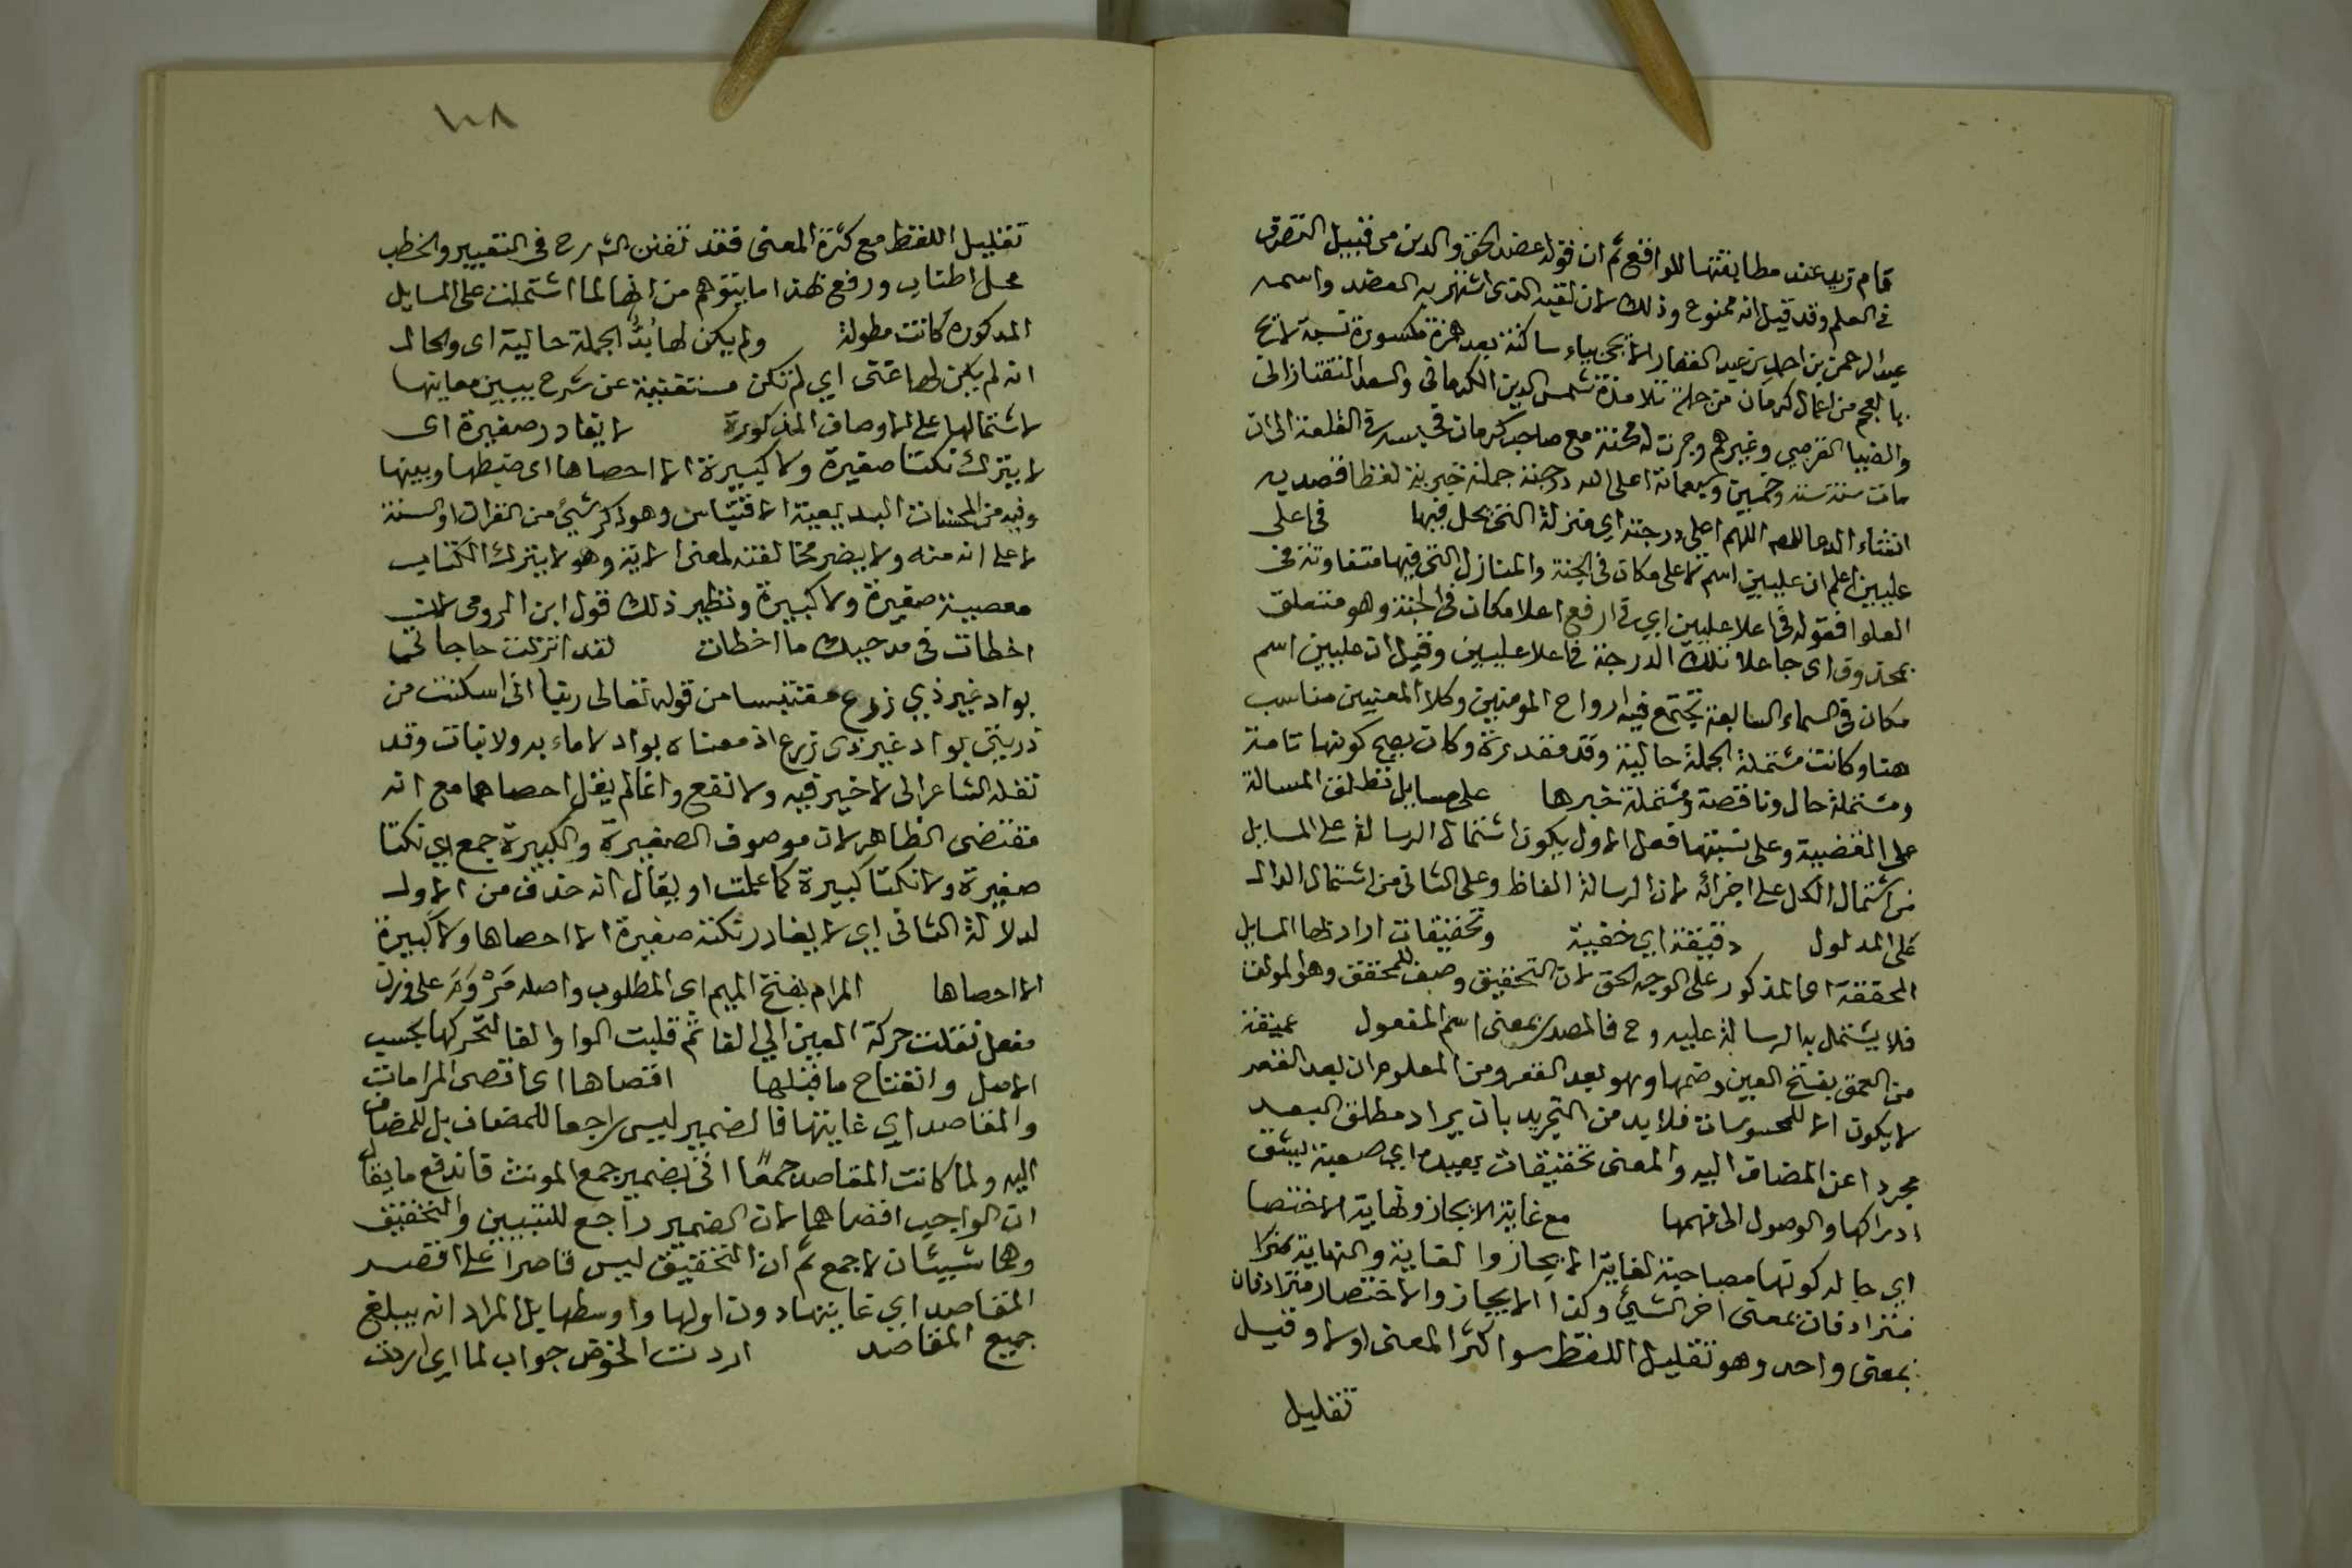 قام زيد عند مطابقتها للواقع ثم ان قوله عضد الحق والدين من قبيل التصرف
في العلم وقد قيل انه ممنوع وذلك لان لقبه الذى اشتهر به العضد واسمه
عبد الرحمن بن احمد بن عبد الغفار الايجى بياء ساكنة بعد همزة مكسورة نسبة لايج
بالعجم من اعمال كرمان من جملة تلامذة شمس الدين الكرمانى والسعد التفتازانى
والضيا القرمي وغيرهم وجرت له محنة مع صاحب كرمان فحبسه في القلعة الى ان
مات سنة ستة وخمسين وسبعمائة اعلى الله درجته جملة خبرية لفظا قصد به
انشاء الدعا اللهم اعلى درجته اي منزلة التى يحل فيها في اعلى
عليين اعلم ان عليين اسم لاعلى مكان في الجنة والمنازل التى فيها متفاوتة في
العلو فقوله في اعلا عليين اي في ارفع اعلا مكان في الجنة وهو متعلق
بمحذوف اى جاعلا تلك الدرجة في اعلا عليين وقيل ان عليين اسم
مكان في السماء السابعة تجتمع فيه ارواح المومنين وكلا المعنيين مناسب
هنا وكانت مشتملة الجملة حالية وقد مقدرة وكان يصح كونها تامة
ومشتملة حال وناقصة ومشتملة خبرها على مسايل تطلق المسالة
على القضية وعلى نسبتها فعلى الاول يكون اشتمال الرسالة على المسايل
من اشتمال الكل على اجزائه لان الرسالة الفاظ وعلى الثانى من اشتمال الدال
على المدلول دقيقة اي خفية وتحقيقات اراد بها المسايل
المحققة اى المذكور على الوجه الحق لان التحقيق وصف للمحقق وهو المولف
فلا يشتمل به الرسالة عليه وح فالمصدر بمعنى اسم المفعول عميقة
من العمق بفتح العين وضمها وهو بعد القعر ومن المعلوم ان بعد القعر
لا يكون الا للمحسوسات فلا بد من التجريد بان يراد مطلق البعد
مجردا عن المضاف اليه والمعنى تحقيقات بعيده اي صعبة يشق
ادراكها والوصول الى فهمها مع غاية الايجاز ونهاية الاختصا
اي حاله كونها مصاحبة لغاية الايجاز والغاية والنهاية
مترادفان بمعنى اخر الشئ وكذا الايجاز والاختصار مترادفان
بمعنى واحد وهو تقليل اللفظ سوا كثر المعنى اولا وقيل
تقليل
١٠٨
تقليل اللفظ مع كثرة المعنى فقد تفنن الشارح في التعبير والخطب
محل اطناب ودفع بهذا ما يتوهم من انها لما اشتملت على المسايل
المذكورة كانت مطولة ولم يكن لها بُدٌّ الجملة حالية اى والحال
انه لم يكن لها غنى اي لم تكن مستغنية عن شرح يبين معاينها
لاشتمالها على الاوصاف المذكورة لا يغادر صغيرة اى
لا يترك نكتتا صغيرة ولا كبيرة الا احصاها اى ضبطها وبينها
وفيه من المحسنات البديعية الاقتباس وهو ذكر شئ من القران او السنة
لا على انه منه ولا يضر مخالفته لمعنى الاية وهو لا يترك الكتاب
معصية صغيرة ولا كبيرة ونظير ذلك قول ابن الرومى لان
اخطات في مدحيك ما اخطات لقد انزلت حاجاتى
بواد غير ذي زرع مقتبسا من قوله تعالى ربنا انى اسكنت من
ذريتى بواد غير ذى زرع اذ معناه بواد لا ماء به ولا نبات وقد
نقله الشاعر الى لا خير فيه ولا نفع وانما لم يقل احصاهما مع انه
مقتضى الظاهر لان موصوف الصغيرة والكبيرة جمع اي نكتا
صغيرة ولا نكتا كبيرة كما علمت او يقال انه حذف من الاول
لدلالة الثانى اي لا يغادر نكتة صغيرة الا احصاها ولا كبيرة
الا احصاها المرام بفتح الميم اى المطلوب واصله مَرْوَم على وزن
مفعل نقلت حركة العين الي الفا ثم قلبت الواو الفا لتحركها بحسب
الاصل وانفتاح ما قبلها اقصاها اى اقصى المرامات
والمقاصد اي غايتها فالضمير ليس راجعا للمضاف بل للمضاف
اليه ولما كانت المقاصد جمعاً اتى بضمير جمع المونث فاندفع ما يقال
ان الواجب اقصاهما لان الضمير راجع للتبيين والتحقيق
وهما شيئان لا جمع ثم ان التحقيق ليس قاصرا على اقصى
المقاصد اي غايتها دون اولها واوسطها بل المراد انه يبلغ
جميع المقاصد اردت الخوض جواب لما اي اردت